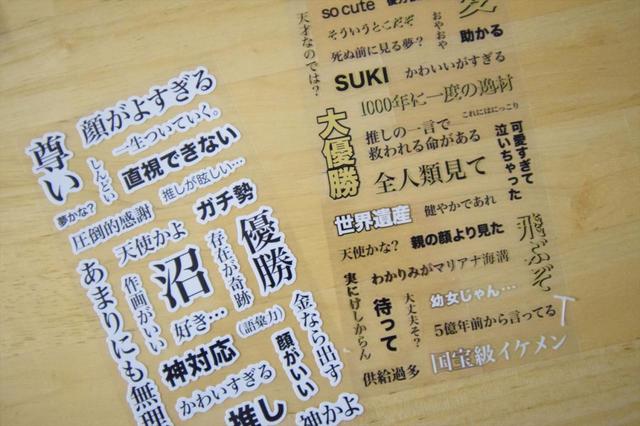 顔がよすぎる
一生ついていく。
尊い
しんどい
直視できない
夢かな?
推しが眩しい…
圧倒的感謝
ガチ勢
天使かよ
存在が奇跡
優勝
あまりにも無理
作画がいい
沼
好き…
(語彙力)
金なら出す
神対応
顔がいい
かわいすぎる
推し
神かよ
天才なのでは?
so cute
そういうとこだぞ
おやおや
死ぬ前に見る夢?
助かる
SUKI
かわいいがすぎる
1000年に一度の逸材
これにはにっこり
大優勝
推しの一言で
救われる命がある
可愛すぎて
泣いちゃった
全人類見て
世界遺産
健やかであれ
飛ぶぞ
天使かな?
親の顔より見た
わかりみがマリアナ海溝
実にけしからん
待って
大丈夫そ?
幼女じゃん…
5億年前から言ってる
供給過多
国宝級イケメン